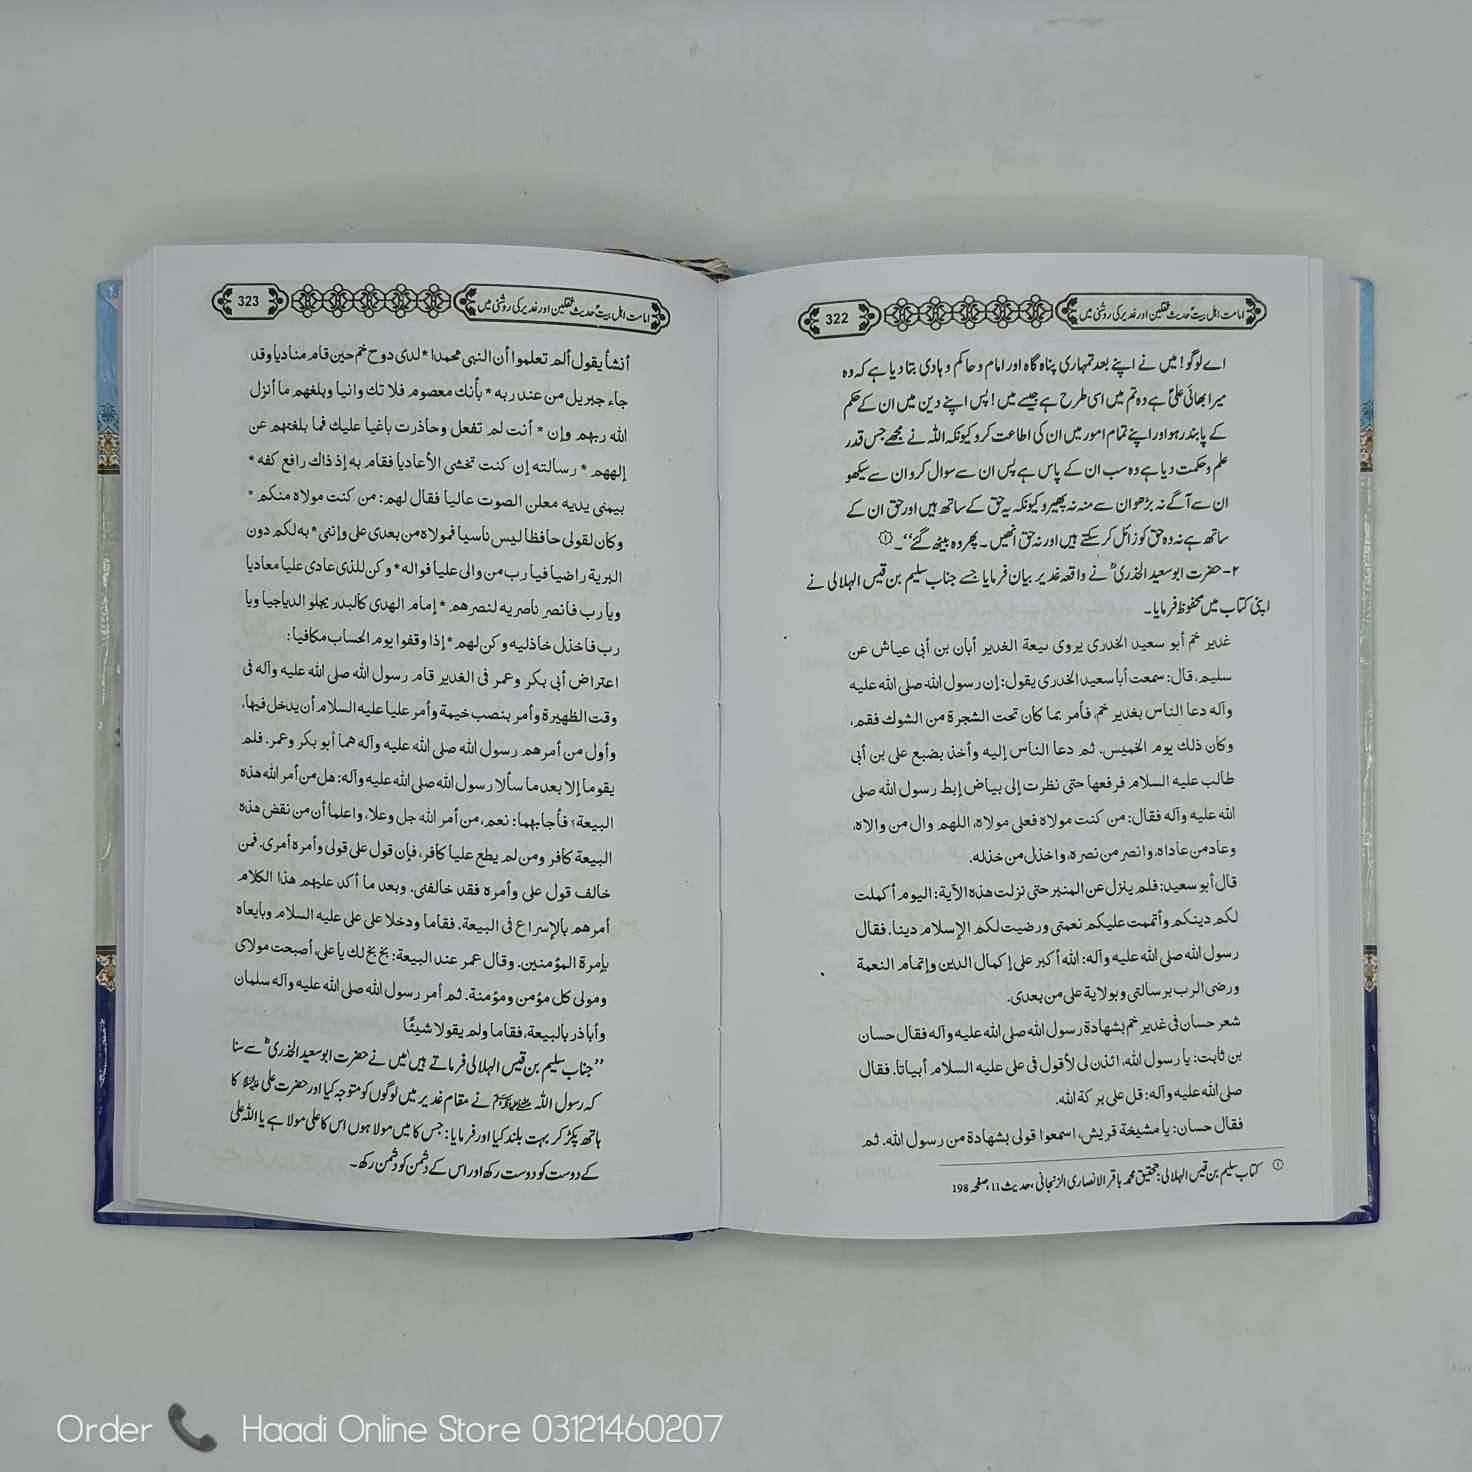 امامت اہل بیتؑ حدیث ثقلین اور غدیر کی روشنی میں
322
اے لوگو! میں نے اپنے بعد تمہاری پناہ گاہ اور امام و حاکم و ہادی بتا دیا ہے کہ وہ
میرا بھائی علیؑ ہے وہ تم میں اسی طرح ہے جیسے میں! پس اپنے دین میں ان کے حکم
کے پابند رہو اور اپنے تمام امور میں ان کی اطاعت کرو کیونکہ اللہ نے مجھے جس قدر
علم و حکمت دیا ہے وہ سب ان کے پاس ہے پس ان سے سوال کرو ان سے سیکھو
ان سے آگے نہ بڑھو ان سے منہ نہ پھیرو کیونکہ یہ حق کے ساتھ ہیں اور حق ان کے
ساتھ ہے نہ وہ حق کو زائل کر سکتے ہیں اور نہ حق انھیں۔ پھر وہ بیٹھ گئے‘‘۔ ①
۲- حضرت ابوسعید الخذریؓ نے واقعہ غدیر بیان فرمایا جسے جناب سلیم بن قیس الہلالی نے
اپنی کتاب میں محفوظ فرمایا۔
غدير خم أبو سعيد الخدرى يروى بيعة الغدير أبان بن أبى عياش عن
سليم، قال: سمعت أبا سعيد الخدرى يقول: إن رسول الله صلى الله عليه
وآله دعا الناس بغدير خم، فأمر بما كان تحت الشجرة من الشوك فقم،
وكان ذلك يوم الخميس. ثم دعا الناس إليه وأخذ بضبع على بن أبى
طالب عليه السلام فرفعها حتى نظرت إلى بياض إبط رسول الله صلى
الله عليه وآله فقال: من كنت مولاه فعلى مولاه، اللهم وال من والاه،
وعاد من عاداه، وانصر من نصره، واخذل من خذله.
قال أبو سعيد: فلم ينزل عن المنبر حتى نزلت هذه الآية: اليوم أكملت
لكم دينكم وأتممت عليكم نعمتى ورضيت لكم الإسلام دينا. فقال
رسول الله صلى الله عليه وآله: الله أكبر على إكمال الدين وإتمام النعمة
ورضى الرب برسالتى وبولاية على من بعدى.
شعر حسان فى غدير خم بشهادة رسول الله صلى الله عليه وآله فقال حسان
بن ثابت: يا رسول الله، ائذن لى لأقول فى على عليه السلام أبياتا. فقال
صلى الله عليه وآله: قل على بركة الله.
فقال حسان: يا مشيخة قريش، اسمعوا قولى بشهادة من رسول الله. ثم
① کتاب سلیم بن قیس الہلالی: تحقیق محمد باقر الانصاری الزنجانی، حدیث ۱۱، صفحہ 198
امامت اہل بیتؑ حدیث ثقلین اور غدیر کی روشنی میں
323
أنشأ يقول ألم تعلموا أن النبى محمدا * لدى دوح خم حين قام مناديا وقد
جاء جبريل من عند ربه * بأنك معصوم فلا تك وانيا وبلغهم ما أنزل
الله ربهم وإن * أنت لم تفعل وحاذرت باغيا عليك فما بلغتهم عن
إلههم * رسالته إن كنت تخشى الأعاديا فقام به إذ ذاك رافع كفه *
بيمنى يديه معلن الصوت عاليا فقال لهم: من كنت مولاه منكم *
وكان لقولى حافظا ليس ناسيا فمولاه من بعدى على وإننى * به لكم دون
البرية راضيا فيا رب من والى عليا فواله * وكن للذى عادى عليا معاديا
ويا رب فانصر ناصريه لنصرهم * إمام الهدى كالبدر يجلو الدياجيا ويا
رب فاخذل خاذليه وكن لهم * إذا وقفوا يوم الحساب مكافيا:
اعتراض أبى بكر وعمر فى الغدير قام رسول الله صلى الله عليه وآله فى
وقت الظهيرة وأمر بنصب خيمة وأمر عليا عليه السلام أن يدخل فيها،
وأول من أمرهم رسول الله صلى الله عليه وآله هما أبو بكر وعمر. فلم
يقوما إلا بعد ما سألا رسول الله صلى الله عليه وآله: هل من أمر الله هذه
البيعة؟ فأجابهما: نعم، من أمر الله جل وعلا، واعلما أن من نقض هذه
البيعة كافر ومن لم يطع عليا كافر، فإن قول على قولى وأمره أمرى. فمن
خالف قول على وأمره فقد خالفنى. وبعد ما أكد عليهم هذا الكلام
أمرهم بالإسراع فى البيعة. فقاما ودخلا على على عليه السلام وبايعاه
بإمرة المؤمنين. وقال عمر عند البيعة: بخ بخ لك يا على، أصبحت مولاى
ومولى كل مؤمن ومؤمنة. ثم أمر رسول الله صلى الله عليه وآله سلمان
وأبا ذر بالبيعة، فقاما ولم يقولا شيئًا
’’جناب سلیم بن قیس الہلالی فرماتے ہیں میں نے حضرت ابوسعید الخذریؓ سے سنا
کہ رسول اللہ ﷺ نے مقام غدیر میں لوگوں کو متوجہ کیا اور حضرت علی علیہ السلام کا
ہاتھ پکڑ کر بہت بلند کیا اور فرمایا: جس کا میں مولا ہوں اس کا علی مولا ہے یا اللہ علی
کے دوست کو دوست رکھ اور اس کے دشمن کو دشمن رکھ۔
Order Haadi Online Store 03121460207